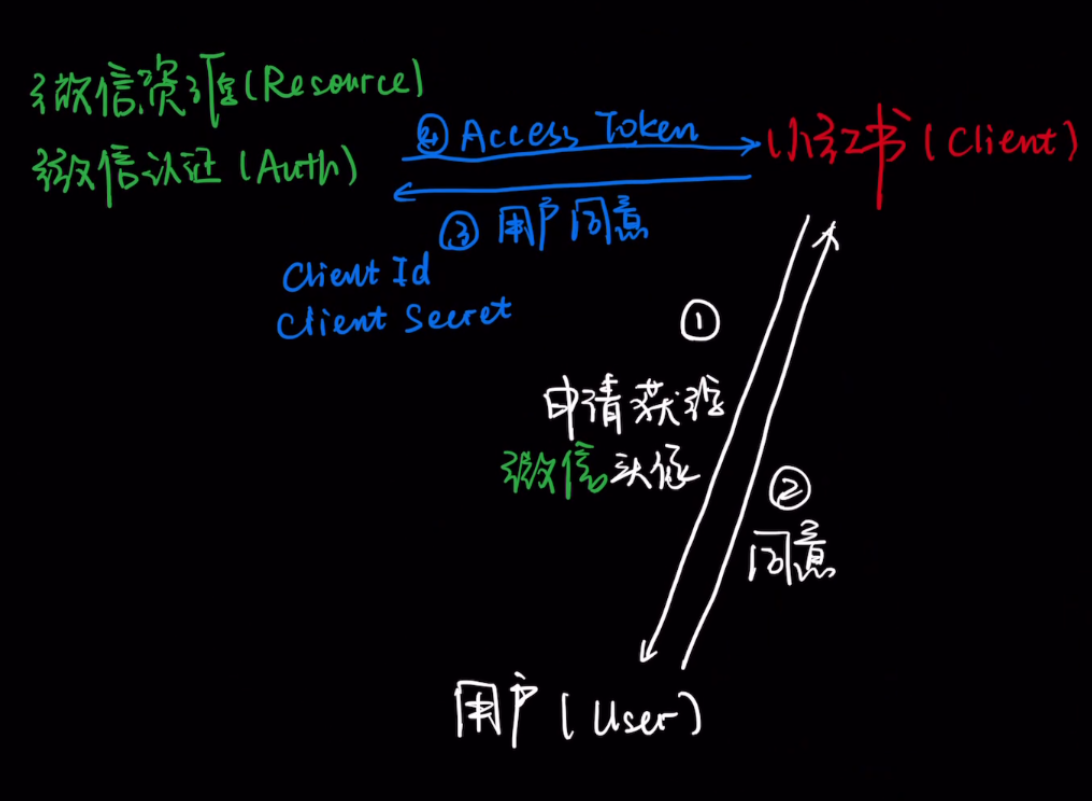 微信资源(Resource)
微信认证(Auth)
④ Access Token
小红书(Client)
③ 用户同意
Client Id
Client Secret
①
申请获得
微信头像
②
同意
用户(User)